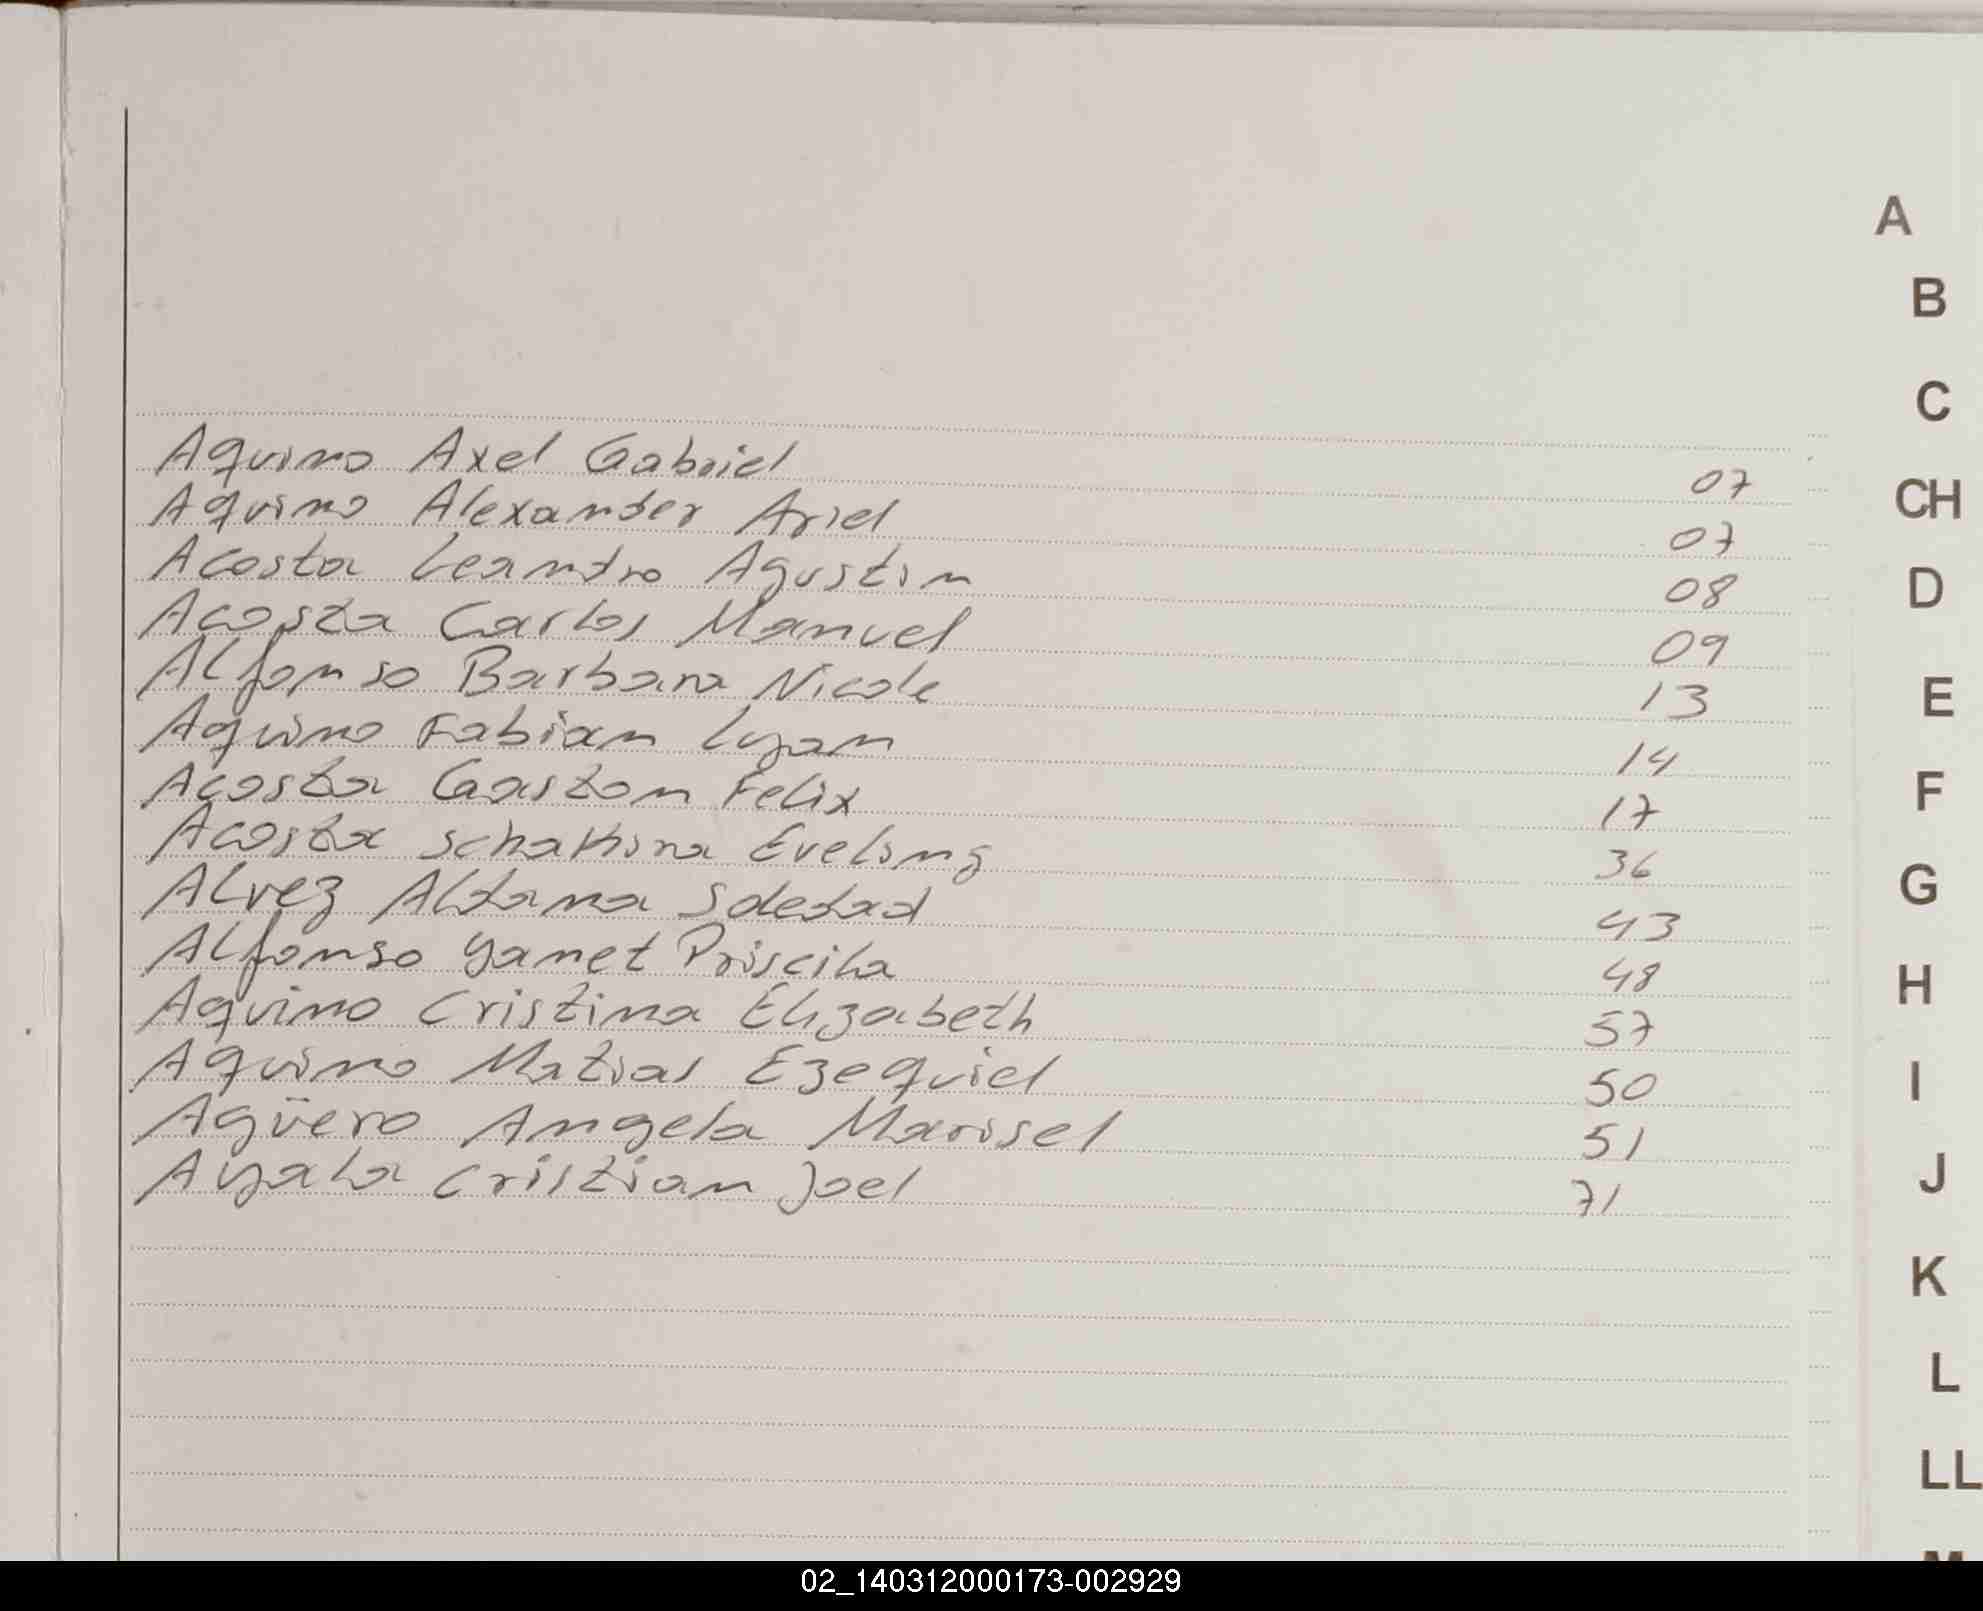 A
B
C
Aquino Axel Gabriel 07
CH
Aquino Alexander Ariel 07
Acosta Leandro Agustin 08
D
Acosta Carlos Manuel 09
Alfonso Barbara Nicole 13
E
Aquino Fabian Lyan 14
Acosta Gaston Felix 17
F
Acosta Schakira Eveling 36
G
Alvez Aldana Soledad 43
Alfonso Yanet Priscila 48
H
Aquino Cristina Elizabeth 57
Aquino Matias Ezequiel 50
I
Agüero Angela Marisel 51
Ayala Cristian Joel 71
J
K
L
LL
M
02_140312000173-002929